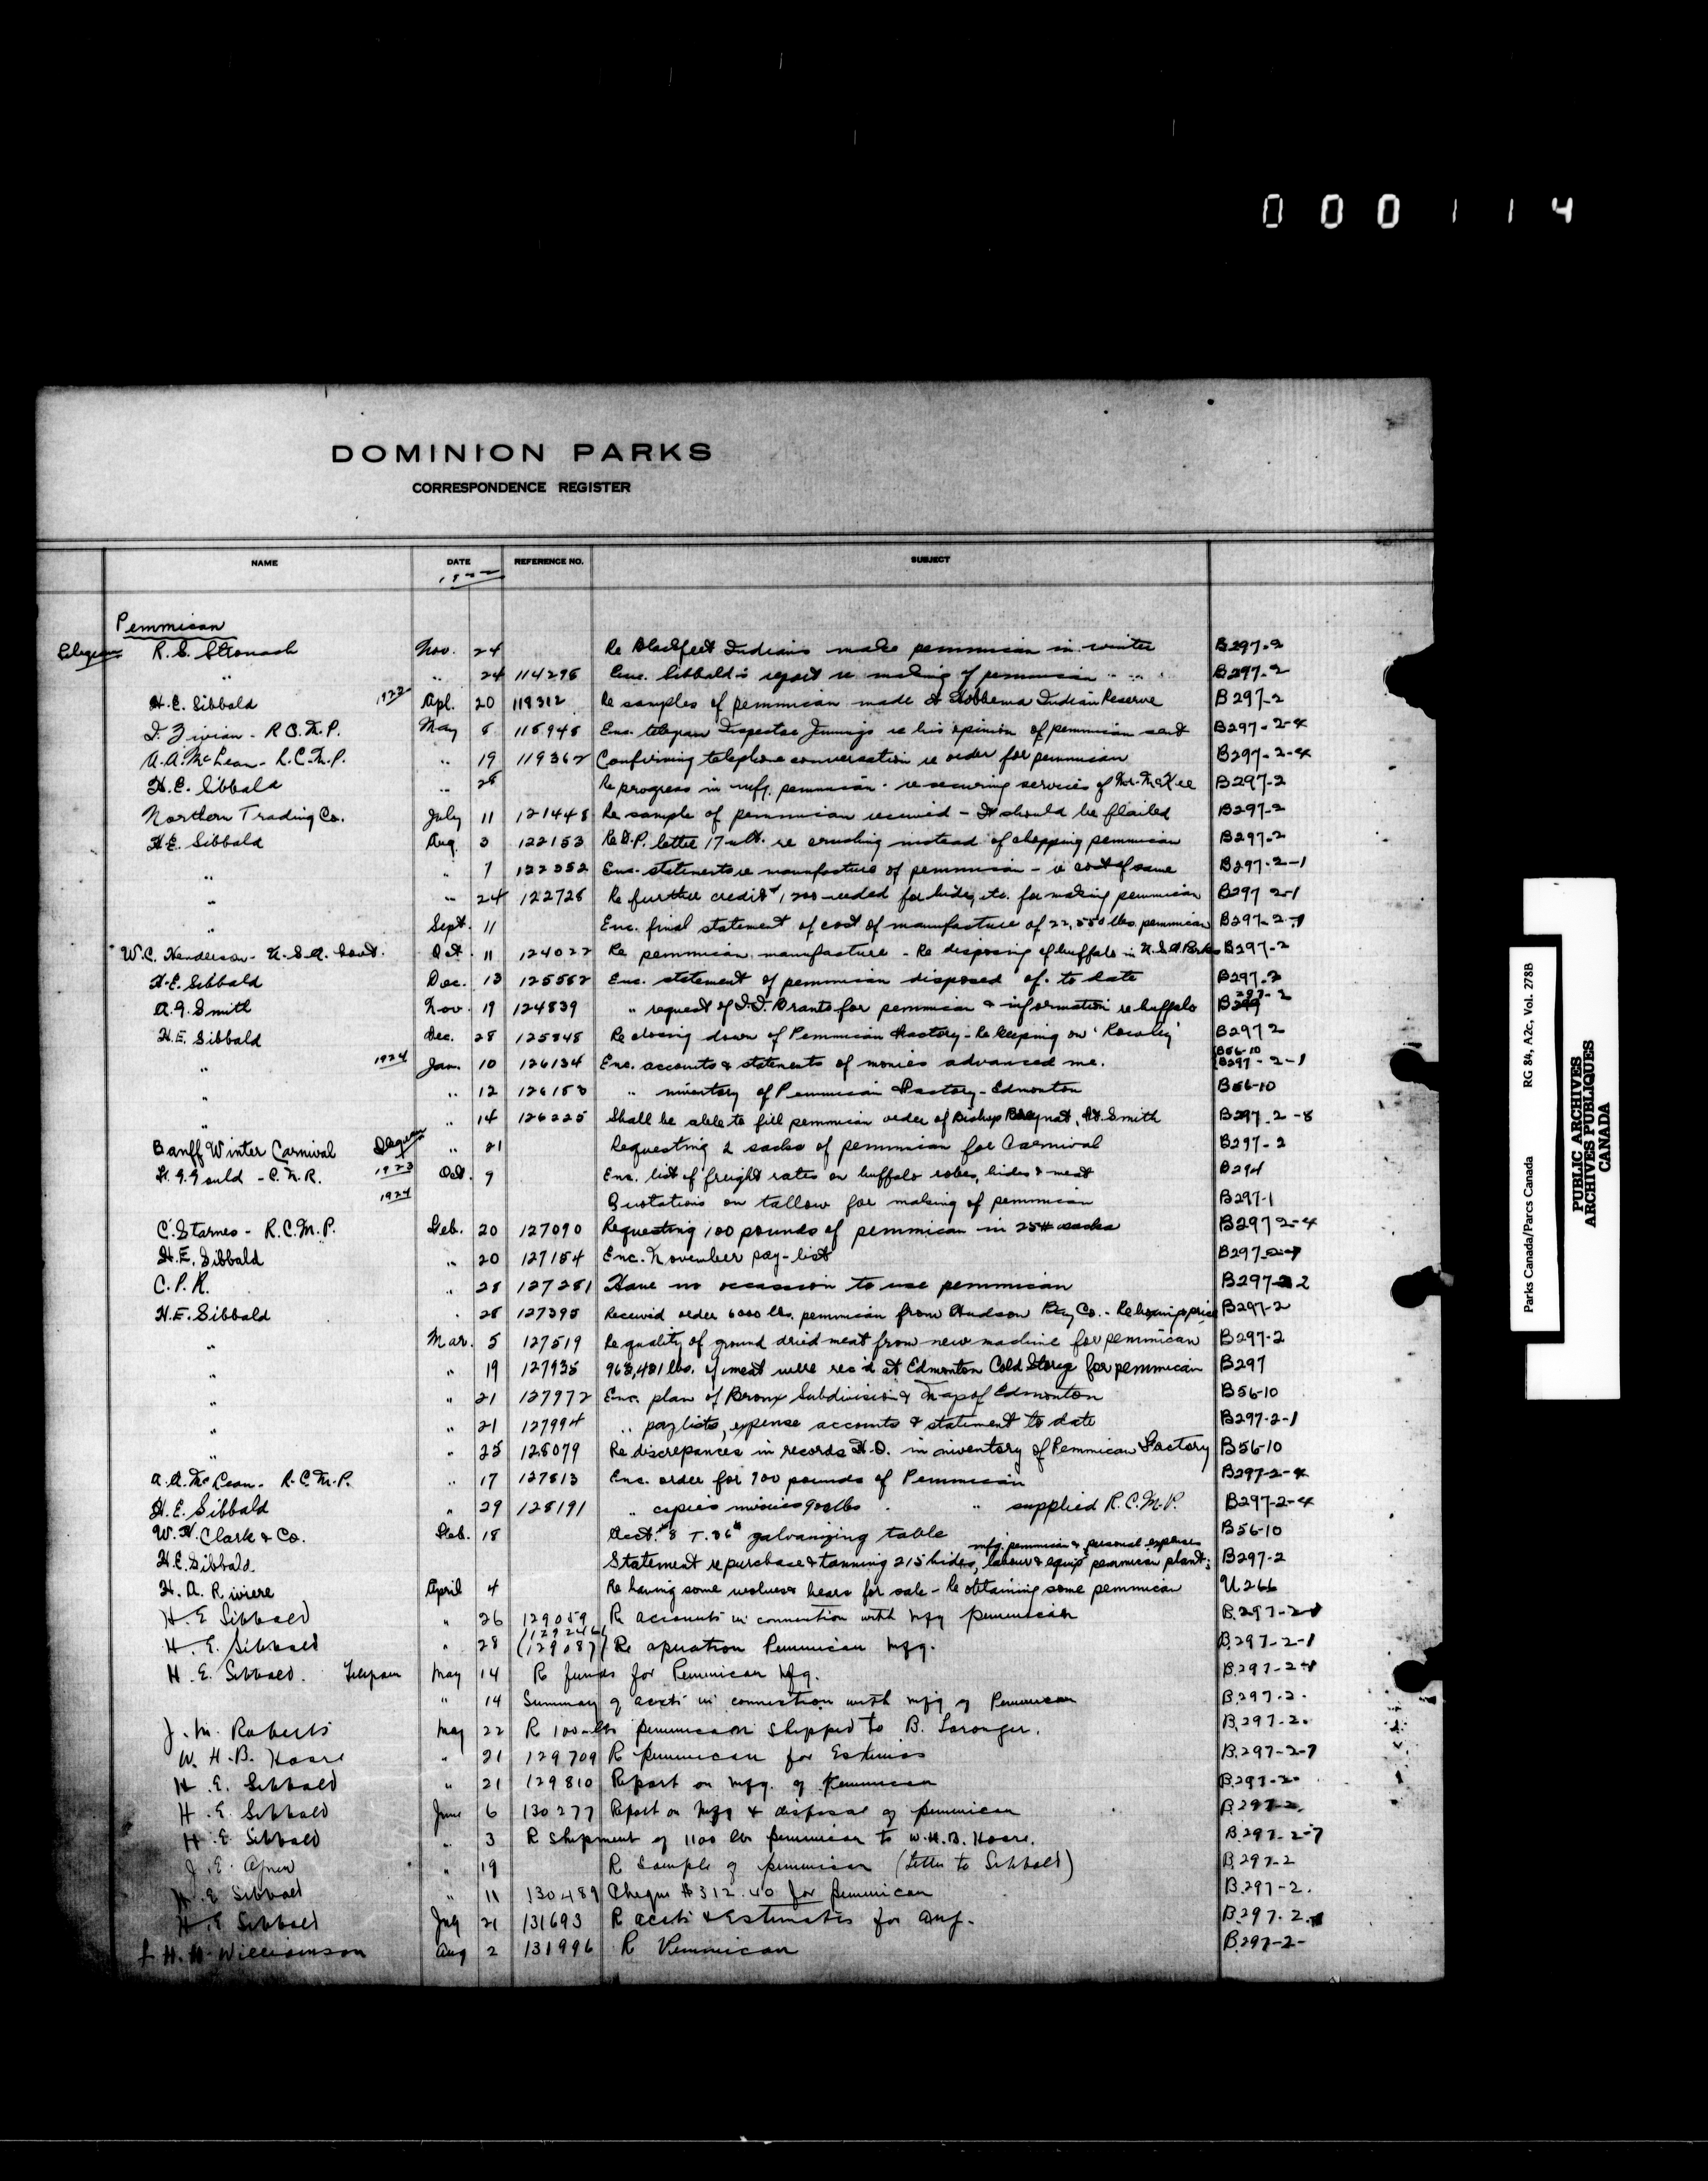 000114
DOMINION PARKS
CORRESPONDENCE REGISTER
NAME DATE REFERENCE NO. SUBJECT
Pemmican
Telegram R.S. Stronach Nov. 24 Re Blackfeet Indians make pemmican in winter B297-2
" " 24 114295 Enc. Sibbald's report re making of pemmican B297-2
H.E. Sibbald Apl. 20 118312 Re samples of pemmican made at Hobbema Indian Reserve B297-2
R.C.M.P. May 8 118948 Enc. telegram Inspector Jennings re his opinion of pemmican sent B297-2-4
A.A. McLean - R.C.M.P. " 19 119362 Confirming telephone conversation re order for pemmican B297-2-4
H.E. Sibbald " 28 Re progress in mfg. pemmican - re securing services of Mr. McKee B297-2
Northern Trading Co. July 11 121448 Re sample of pemmican received - It should be flailed B297-2
H.E. Sibbald Aug. 3 122153 Re D.P. letter 17 ult. re crushing instead of chopping pemmican B297-2
" " 7 122352 Enc. statements re manufacture of pemmican - re cost of same B297-2-1
" " 24 122728 Re further credit 1200 needed for hides, etc. for making pemmican B297 2-1
" Sept. 11 Enc. final statement of cost of manufacture of 22,550 lbs. pemmican B297-2-1
W.C. Henderson - U.S.A. Govt. Oct. 11 124022 Re pemmican manufacture - Re disposing of buffalo in U.S.A. Parks B297-2
H.E. Sibbald Dec. 13 125562 Enc. statement of pemmican disposed of to date B297-2
A.G. Smith Nov. 19 124839 " request of Brants for pemmican & information re buffalo B297-2
H.E. Sibbald Dec. 28 125848 Re closing down of Pemmican Factory - Re keeping on 'Rowley' B297 2
" 1924 Jan. 10 126134 Enc. accounts & statements of monies advanced me. B56-10 B297-2-1
" " 12 126153 " inventory of Pemmican Factory - Edmonton B56-10
" " 14 126225 Shall be able to fill pemmican order of Bishop Breynat, Ft. Smith B297-2-8
Banff Winter Carnival Telegram " 21 Requesting 2 sacks of pemmican for Carnival B297-2
Gould - C.N.R. 1923 Oct. 9 Enc. list of freight rates on buffalo robes, hides & meat B294
1924 Quotations on tallow for making of pemmican B297-1
C. Starnes - R.C.M.P. Feb. 20 127090 Requesting 100 pounds of pemmican in 25# sacks B297 2-4
H.E. Sibbald " 20 127154 Enc. November pay-list B297-2-1
C.P.R. " 28 127281 Have no occassion to use pemmican B297-2
H.E. Sibbald " 28 127395 Received order 6000 lbs. pemmican from Hudson Bay Co. - Re boxing & price B297-2
" Mar. 5 127519 Re quality of ground dried meat from new machine for pemmican B297-2
" " 19 127935 968,481 lbs. of meat were rec'd at Edmonton Cold Storage for pemmican B297
" " 21 127972 Enc. plan of Bronx Subdivision & Map of Edmonton B56-10
" " 21 127994 " paylists, expense accounts & statement to date B297-2-1
" " 25 128079 Re discrepances in records H.O. in inventory of Pemmican Factory B56-10
A.A. McLean - R.C.M.P. " 17 127813 Enc. order for 900 pounds of Pemmican B297-2-4
H.E. Sibbald " 29 128191 " copies invoices 900 lbs " supplied R.C.M.P. B297-2-4
W.H. Clark & Co. Feb. 18 Acct. galvanizing table B56-10
mfg. pemmican & personal expenses
H.E. Sibbald Statement re purchase & tanning 215 hides, labour & equip pemmican plant; B297-2
H.A. Riviere April 4 Re having some wolves & bears for sale - Re obtaining some pemmican U266
H.E Sibbald " 26 129059 Re accounts in connection with mfg pemmican B.297-2-1
H.E. Sibbald " 28 129246 (129087) Re operation Pemmican Mfg. B.297-2-1
H.E. Sibbald. Telegram May 14 Re funds for Pemmican Mfg. B.297-2-1
" 14 Summary of accts in connection with mfg of Pemmican B.297-2.
J.M. Roberts May 22 R 100 lbs pemmican shipped to B. Loranger. B.297-2.
W.H.B. Hoare " 21 129709 R pemmican for Eskimos B.297-2-7
H.E. Sibbald " 21 129810 Report on mfg. of Pemmican B.297-2-
H.E. Sibbald June 6 130277 Report on Mfg & disposal of pemmican B.297-2.
H.E Sibbald " 3 R shipment of 1100 lbs pemmican to W.H.B. Hoare. B.297-2-7
J.E. " 19 R Sample of pemmican (Letter to Sibbald) B.297-2
H.E Sibbald " 11 130489 Cheque $312.40 for pemmican B.297-2.
H.E Sibbald July 21 131693 R accts & Estimates for Aug. B.297.2.
H.H. Williamson Aug 2 131996 R Pemmican B.297-2-
Parks Canada/Parcs Canada RG 84, A2c, Vol. 278B
PUBLIC ARCHIVES
ARCHIVES PUBLIQUES
CANADA